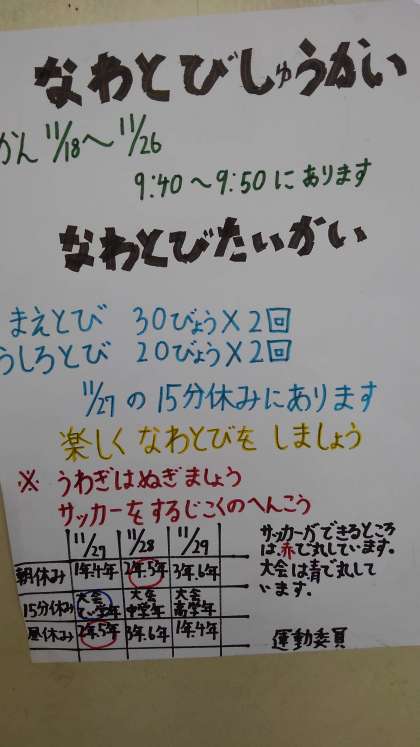 なわとびしゅうかい
かん 11/18〜11/26
9:40〜9:50にあります
なわとびたいかい
まえとび 30びょう×2回
うしろとび 20びょう×2回
11/27の15分休みにあります
楽しくなわとびをしましょう
※ うわぎはぬぎましょう
サッカーをするじこくのへんこう
11/27 11/28 11/29
朝休み 1年.4年 2年.5年 3年.6年
15分休み 大会 てい学年 大会 中学年 大会 高学年
昼休み 2年.5年 3年.6年 1年.4年
サッカーができるところ
は赤で丸しています。
大会は青で丸して
います。
運動委員